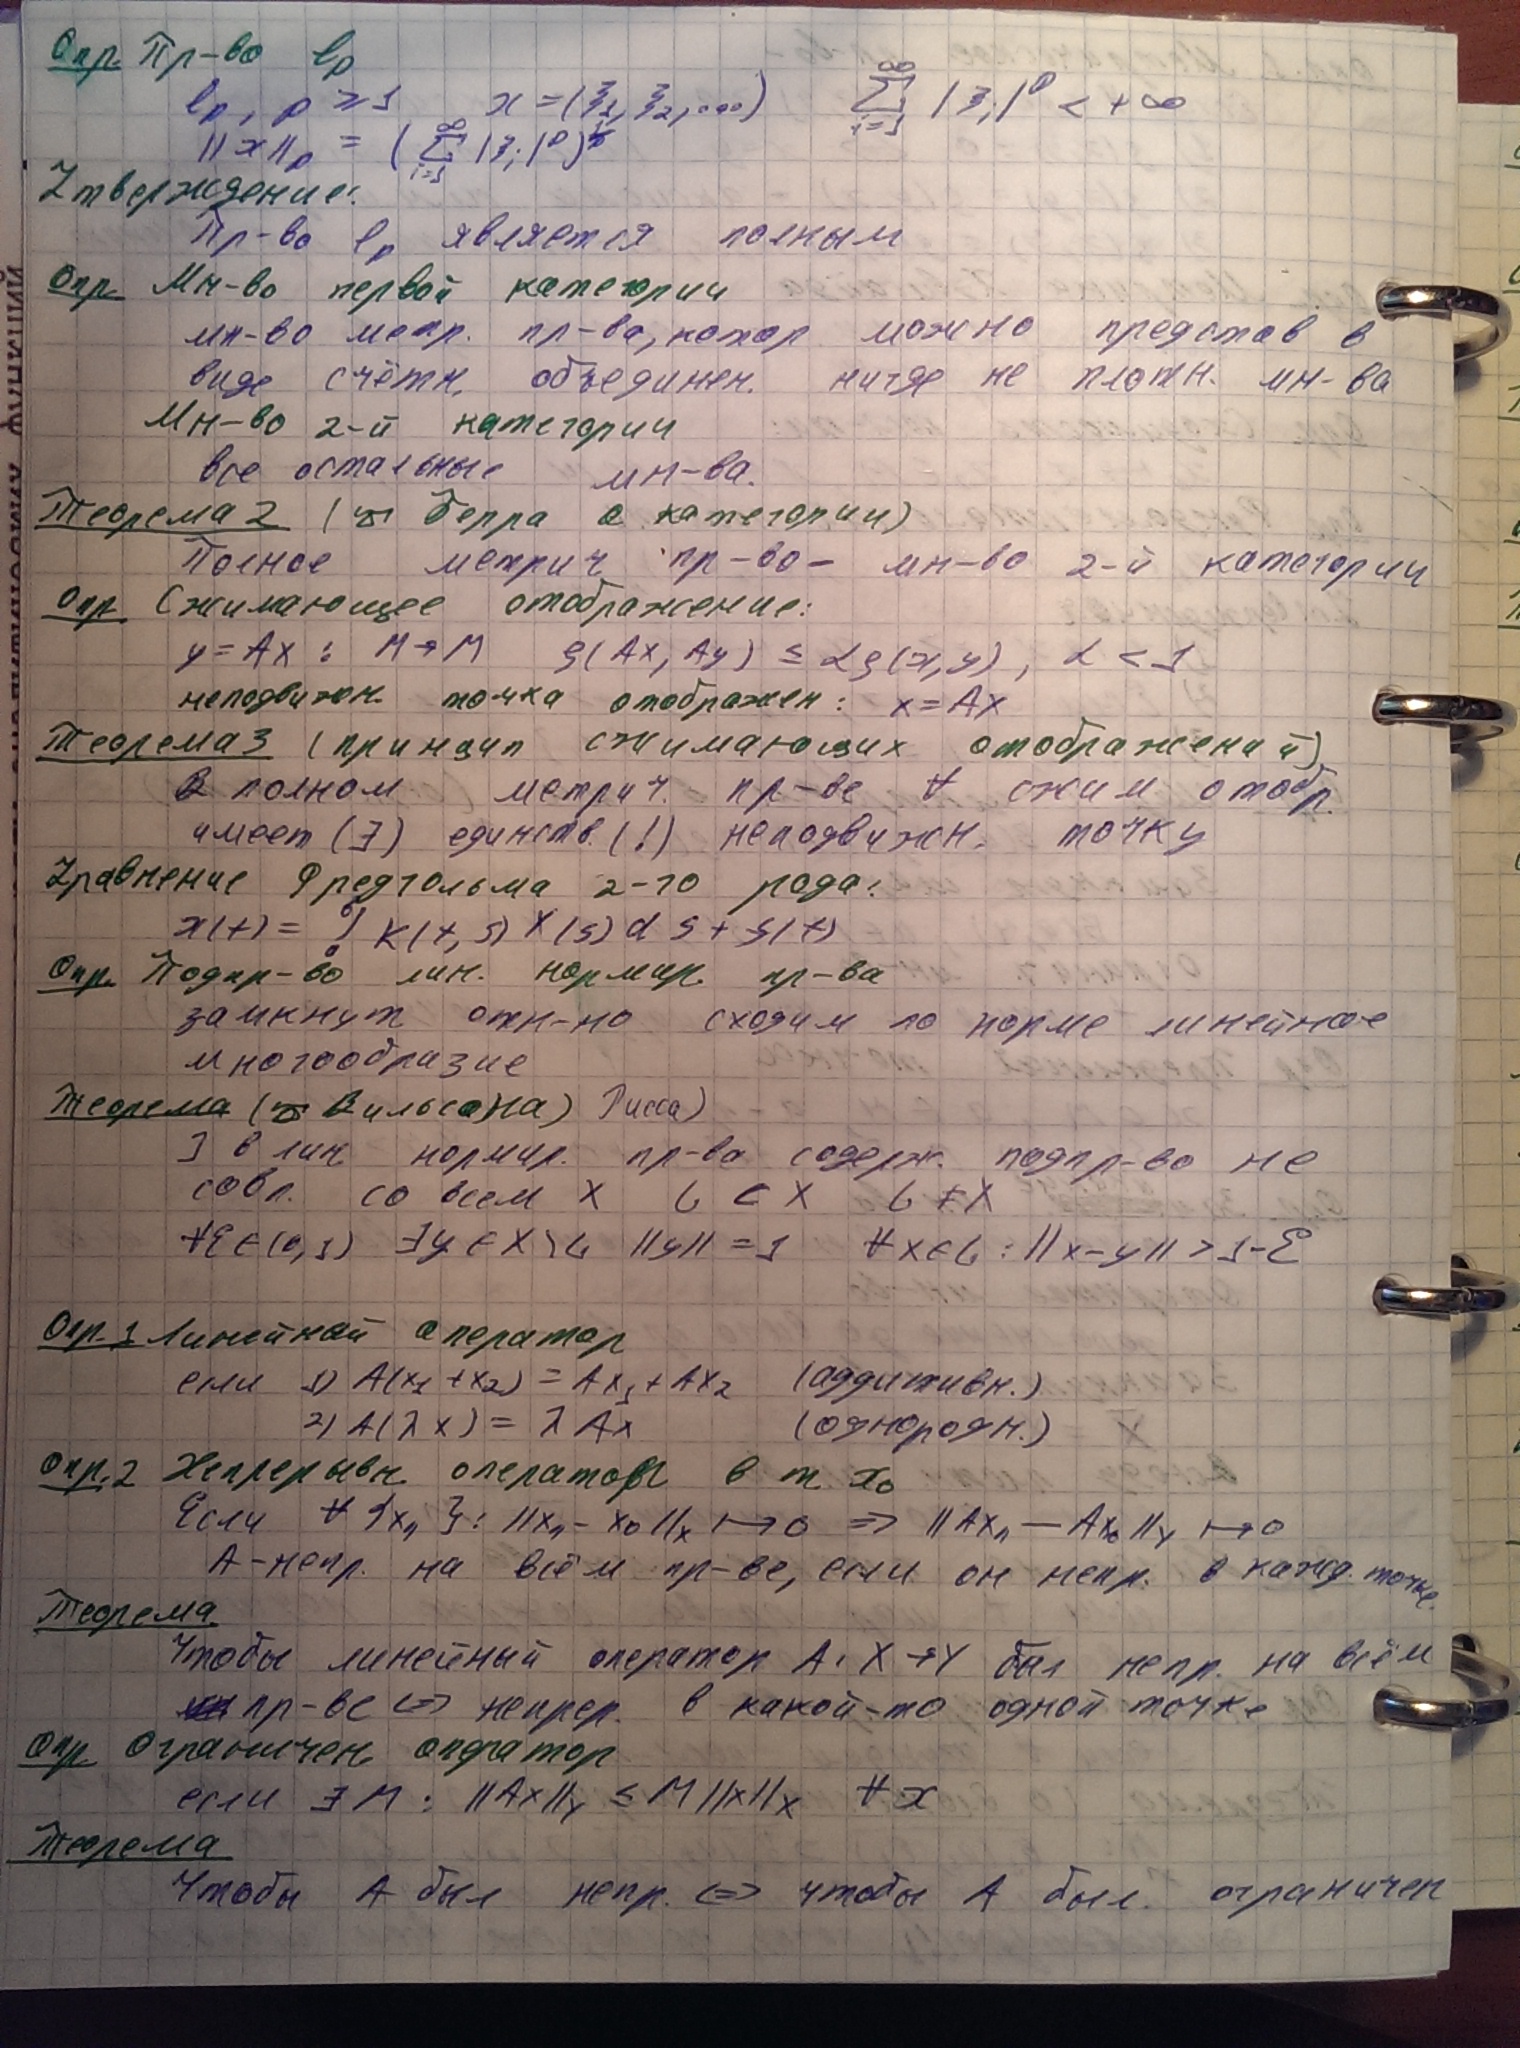 Опр. Пр-во lp
lp, p ⩾ 1 x = (ξ1, ξ2, ...) ∑_{i=1}^{∞} |ξi|^p < +∞
||x||p = (∑_{i=1}^{∞} |ξi|^p)^{1/p}
Утверждение:
Пр-во lp является полным
Опр. Мн-во первой категории
мн-во метр. пр-ва, котор можно представ в
виде счётн. объединен. нигде не плотн. мн-ва
Мн-во 2-й категории
все остальные мн-ва.
Теорема 2 ( Бэрра о категории)
Полное метрич пр-во – мн-во 2-й категории
Опр Сжимающее отображение:
y = Ax : M → M ρ(Ax, Ay) ≤ αρ(x, y), α < 1
неподвижн. точка отображен: x = Ax
Теорема 3 (принцип сжимающих отображений)
В полном метрич. пр-ве ∀ сжим отобр.
имеет (∃) единств. (!) неподвижн. точку
Уравнение Фредгольма 2-го рода:
x(t) = ∫ K(t, s) x(s) d s + f(t)
Опр. Подпр-во лин. нормир. пр-ва
замкнут отн-но сходим по норме линейное
многообразие
Теорема ( Рисса)
] в лин нормир. пр-ва содерж. подпр-во не
совп. со всем X L ⊂ X L ≠ X
∀ε∈(0,1) ∃y ∈ X\L ||y|| = 1 ∀x∈L : ||x-y|| > 1-ε
Опр. 1 Линейный оператор
если 1) A(x1 + x2) = Ax1 + Ax2 (аддитивн.)
2) A(λx) = λAx (однородн.)
Опр. 2 Непрерывн. оператор в т x0
Если ∀ {xn}: ||xn - x0||x ↦ 0 ⇒ ||Axn — Ax0||Y ↦ 0
A-непр. на всём пр-ве, если он непр. в кажд. точке.
Теорема
Чтобы линейный оператор A: X → Y был непр. на всём
пр-ве ⇔ непрер. в какой-то одной точке
Опр Ограничен оператор
если ∃ M : ||Ax||Y ≤ M ||x||X ∀ x
Теорема
Чтобы A был непр. ⇔ чтобы A был. ограничен